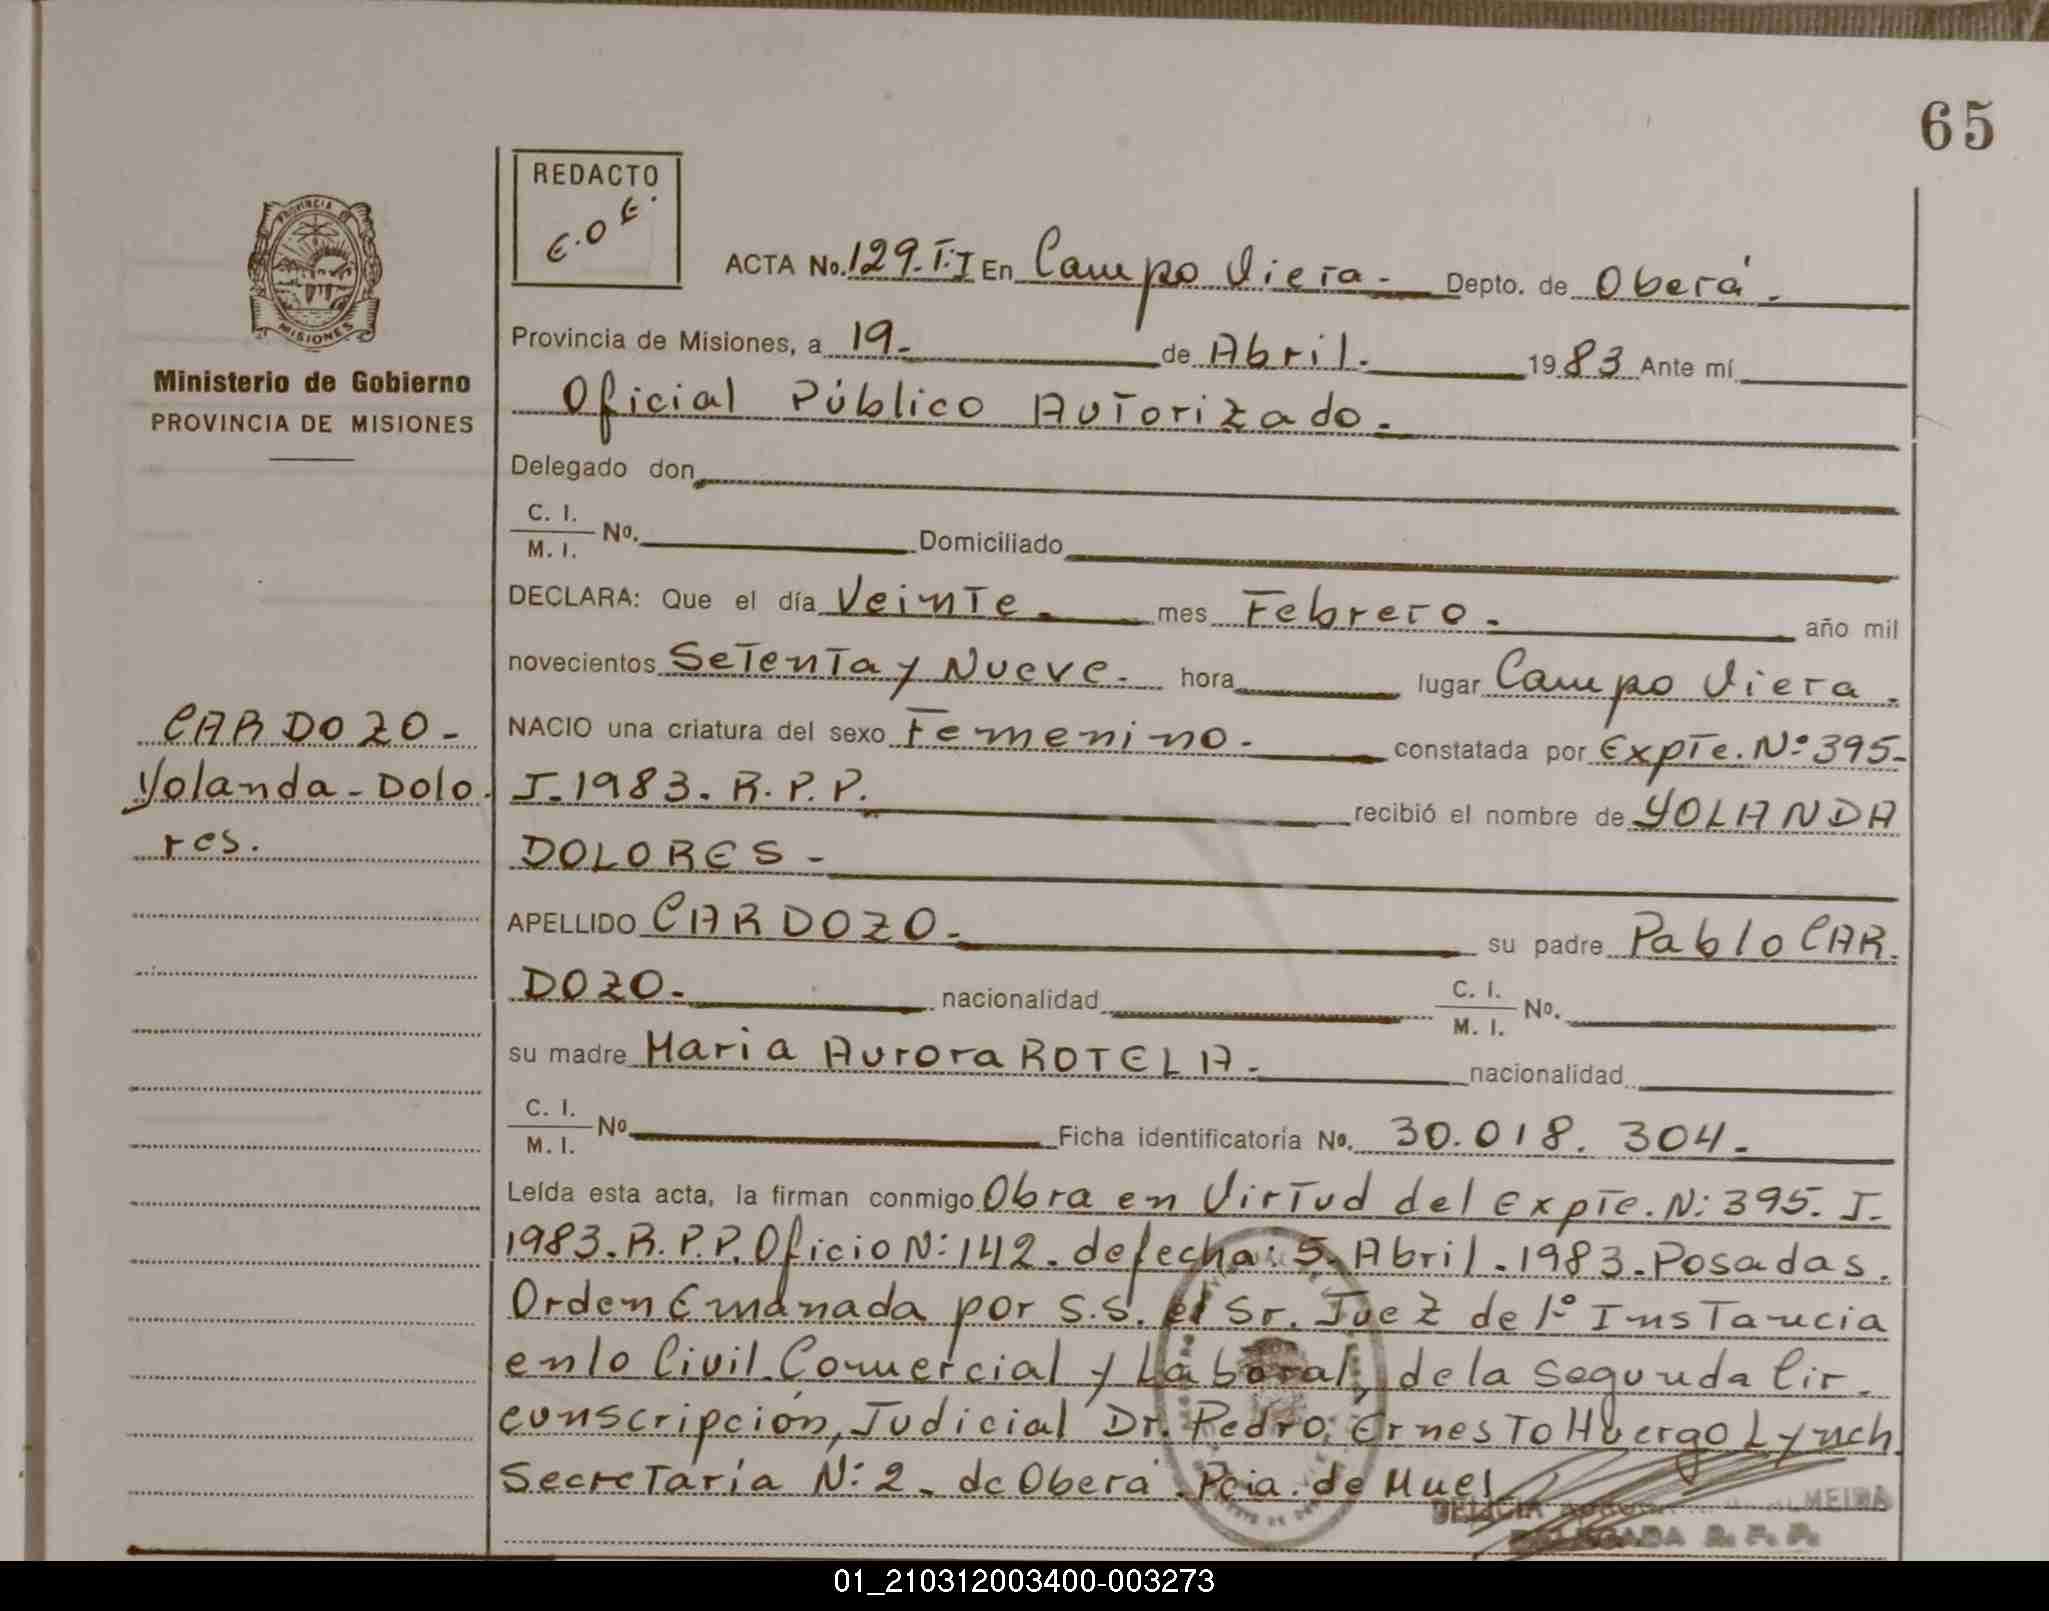 65
REDACTO
E.O.E.
PROVINCIA DE
MISIONES
Ministerio de Gobierno
PROVINCIA DE MISIONES
ACTA No. 129.T:I En Campo Viera - Depto. de Oberá.
Provincia de Misiones, a 19. de Abril. 1983 Ante mí
Oficial Público Autorizado.
Delegado don
C. I.
M. I. No. Domiciliado
DECLARA: Que el día Veinte. mes Febrero. año mil
novecientos Setenta y Nueve. hora lugar Campo Viera.
NACIO una criatura del sexo Femenino. constatada por Expte. Nº 395-
I-1983. R.P.P. recibió el nombre de YOLANDA
DOLORES -
CARDOZO -
Yolanda - Dolo.
res.
APELLIDO CARDOZO. su padre Pablo CAR.
DOZO. nacionalidad C. I.
M. I. No.
su madre Maria Aurora ROTELA. nacionalidad
C. I.
M. I. No Ficha identificatoria No. 30.018.304.
Leída esta acta, la firman conmigo Obra en Virtud del Expte. N: 395. I.
1983. R.P.P. Oficio N: 142. de fecha: 5. Abril. 1983. Posadas.
Orden Emanada por S.S. el Sr. Juez de 1º Instancia
en lo Civil. Comercial y Laboral, de la Segunda Cir.
cunscripción, Judicial Dr. Pedro Ernesto Huergo Lynch.
Secretaría N: 2. de Oberá. Pcia. de Mnes
DELEGADA R. P. P.
01_210312003400-003273